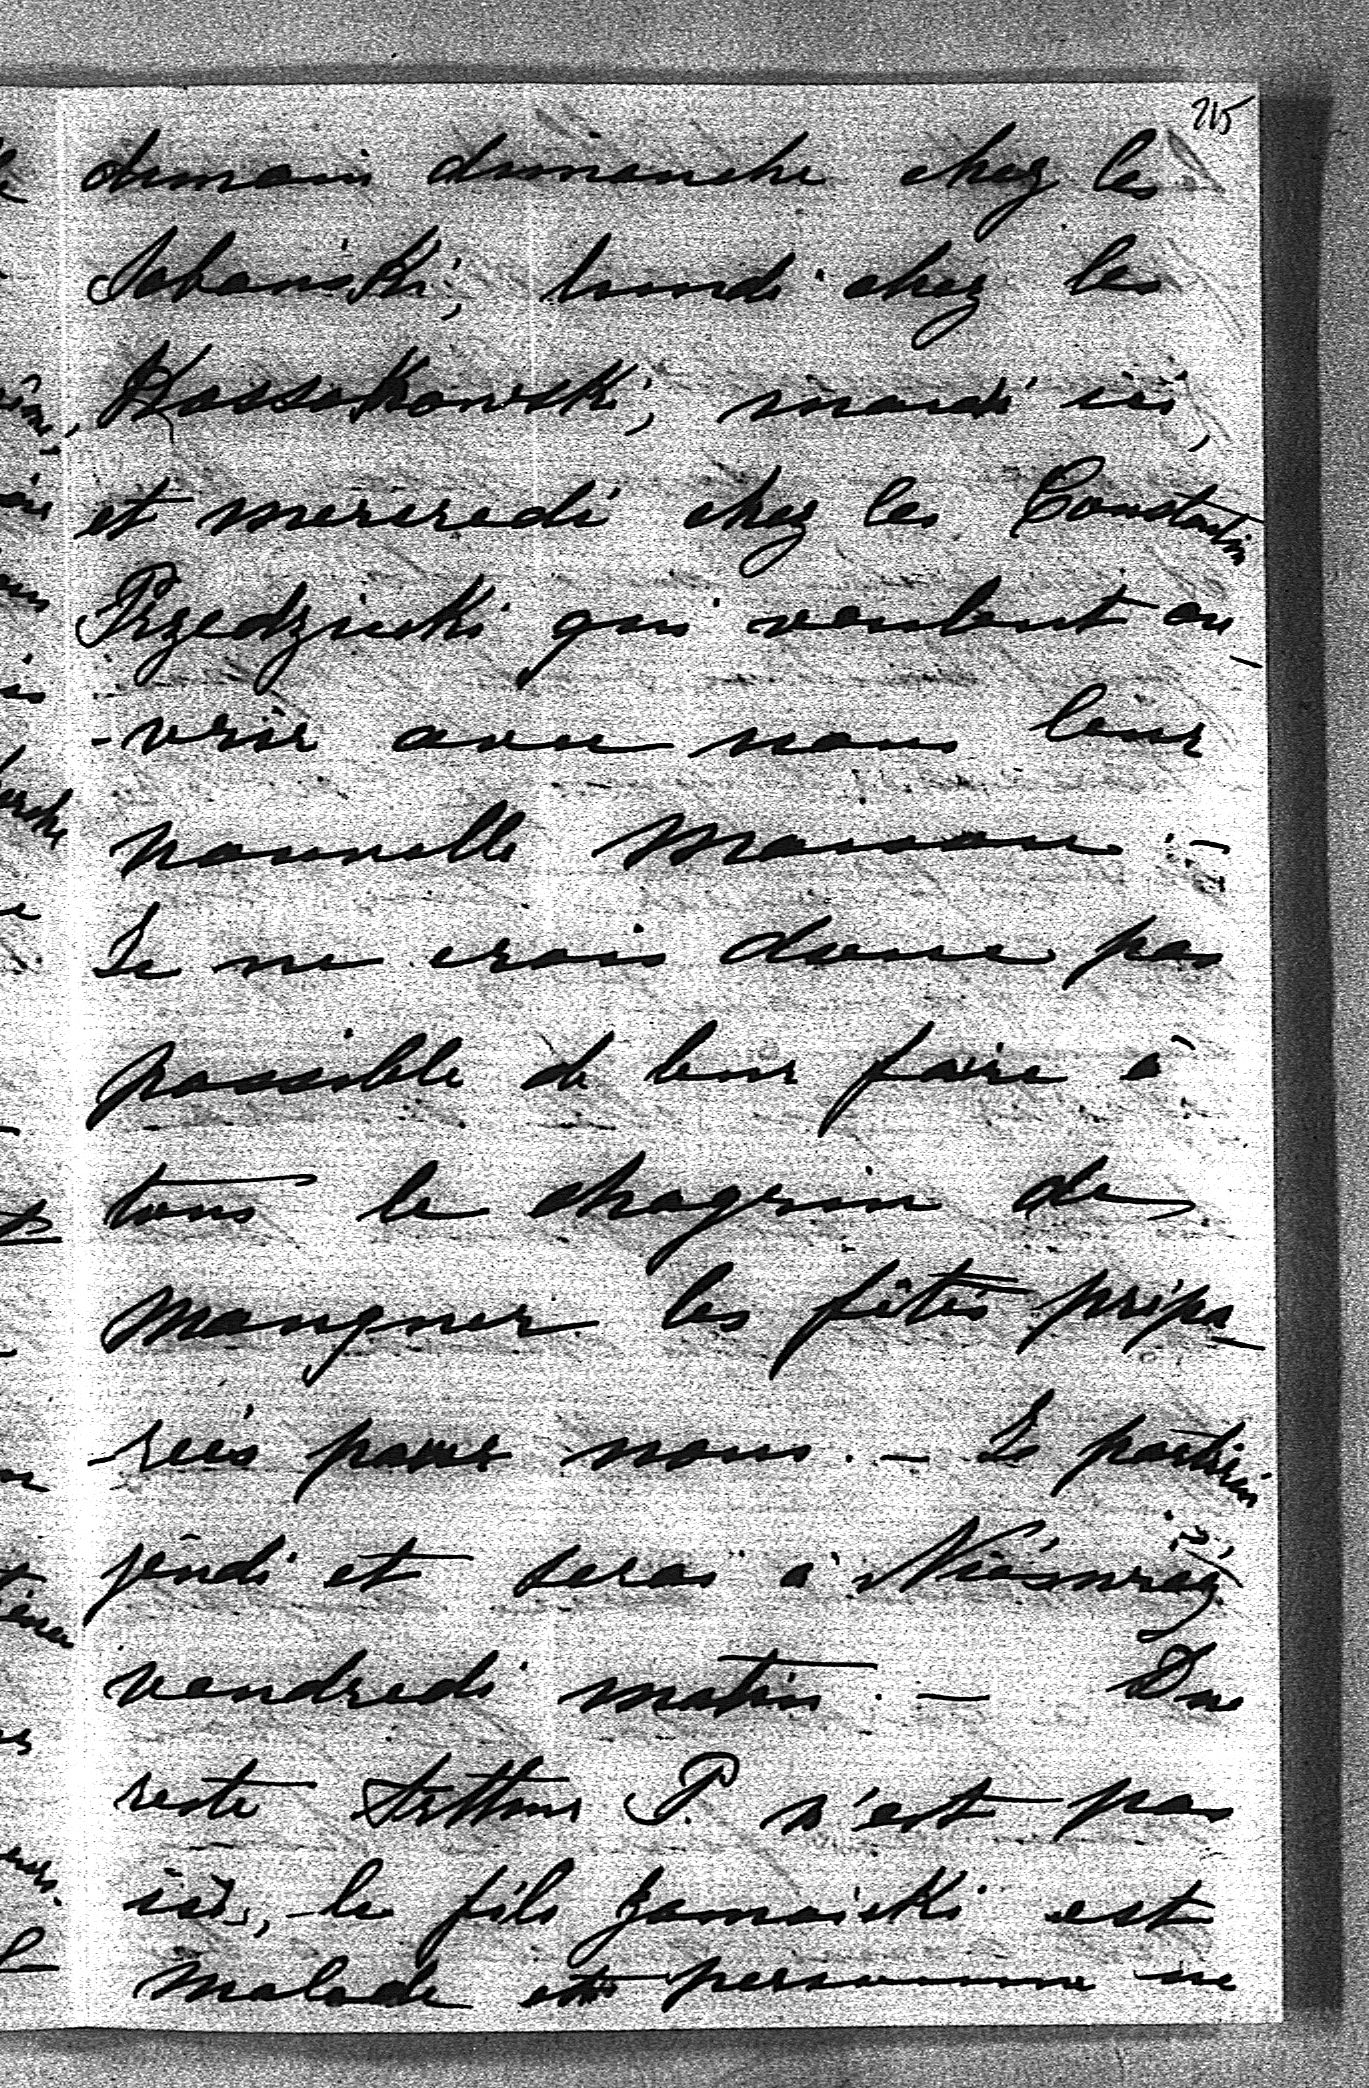 215
demain dimanche chez les
Sobanski, lundi chez les
Kossakowski, mardi ici,
et mercredi chez les Constantin
Przedziecki qui veulent ou-
-vrir avec nous leur
nouvelle maison. -
Je ne crois donc pas
possible de leur faire à
tous le chagrin de
manquer les fêtes prépa-
-rées pour nous. - Je partirai
jeudi et serai à Nieświez
vendredi matin. - Du
reste P. n'est pas
ici, le fils Zamoiski est
malade et personne ne